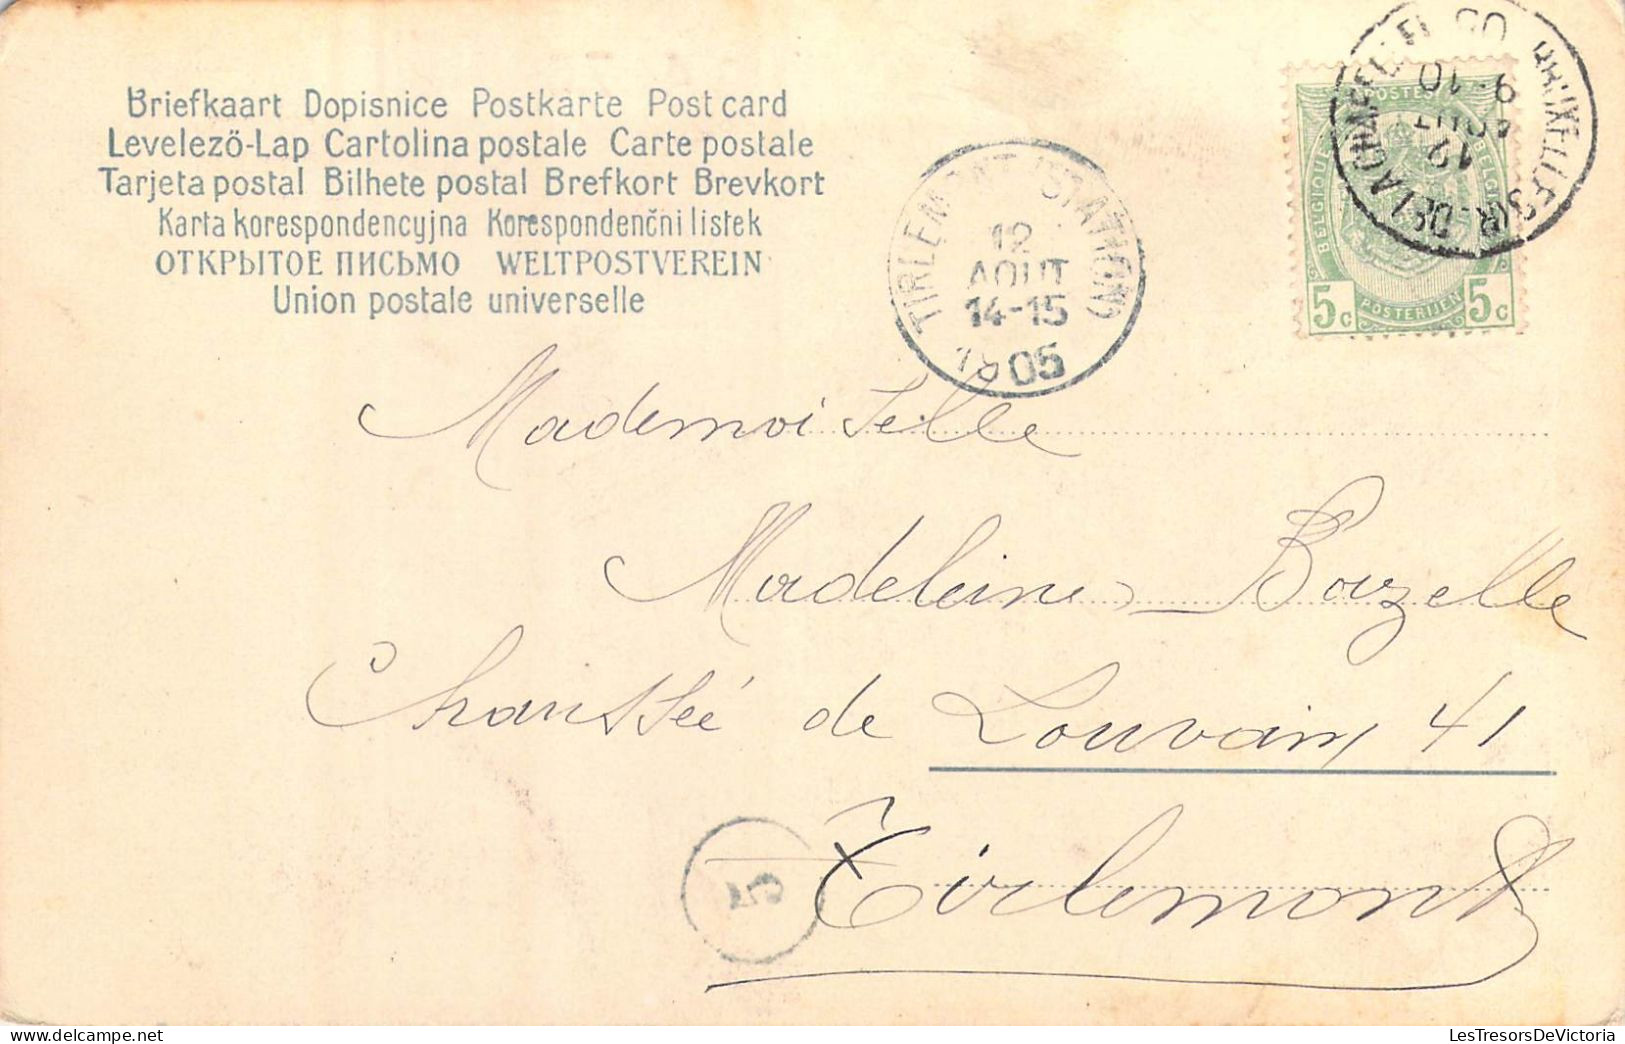 Briefkaart Dopisnice Postkarte Post card
Levelezö-Lap Cartolina postale Carte postale
Tarjeta postal Bilhete postal Brefkort Brevkort
Karta korespondencyjna Korespondenční lístek
ОТКРЫТОЕ ПИСЬМО WELTPOSTVEREIN
Union postale universelle
TIRLEMONT (STATION)
12
AOUT
14-15
1905
9-10
AOUT
12
POSTES
BELGIQUE
BELGIË
5c POSTERIJEN 5c
Mademoiselle
Madeleine Bazelle
Chaussée de Louvain 41
Tirlemont
5
LesTresorsDeVictoria